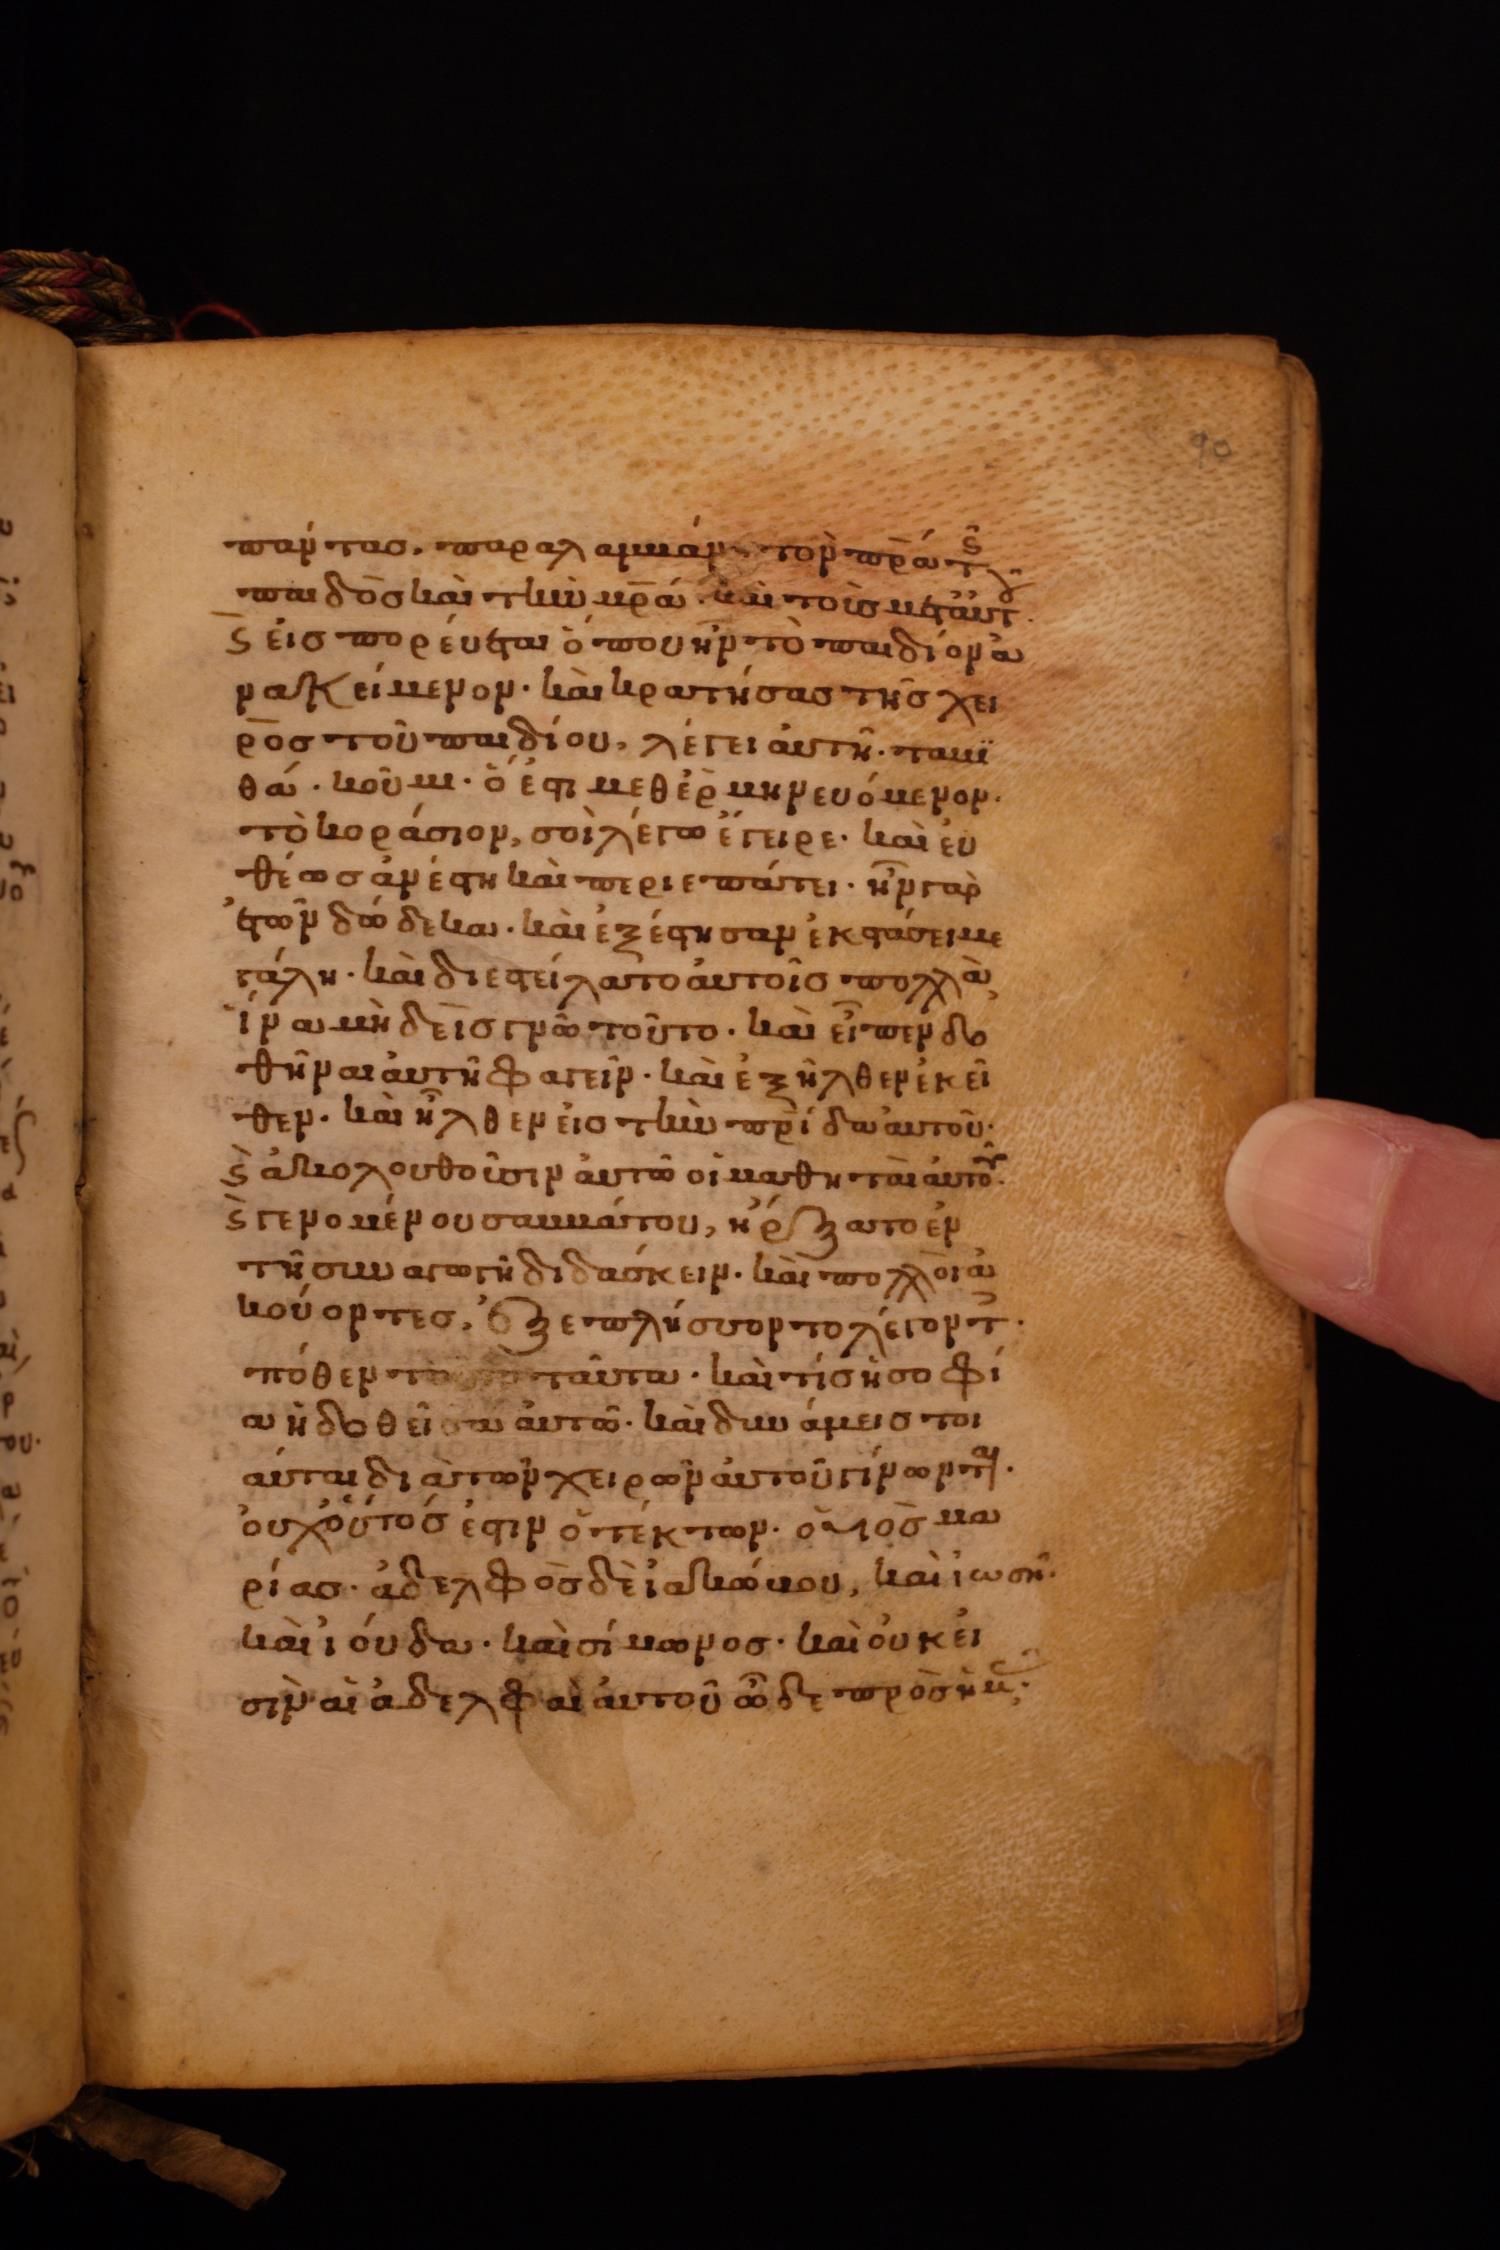 90
πάντας, παραλαμβάν τὸν πρα τ
παιδὸς καὶ τὴν μρα. καὶ τοῖς μεταυτ.
ς εἰσπορέυεται ὅπου ἦν τὸ παιδίον ἀ
νακείμενον. καὶ κρατήσας τῆς χει
ρος τοῦ παιδίου, λέγει ἀυτῆ. ταλι
θά. κοῦμι. ὅ ἐστι μεθερμηνευόμενον.
τὸ κοράσιον, σοὶ λέγω ἔγειρε. καὶ ἐυ
θέως ἀνέστη καὶ περιεπάτει. ἦν γὰρ
ἐτῶν δώδεκα. καὶ ἐξέστησαν ἐκστάσει με
γάλη. καὶ διεστείλατο ἀυτοῖς πολλὰ,
ἵνα μὴδεὶς γνῶ τοῦτο. καὶ εἶπεν δο
θῆναι ἀυτῆ φαγεῖν. καὶ ἐξῆλθεν ἐκεῖ
θεν. καὶ ἦλθεν εἰς τὴν πρίδα ἀυτοῦ.
ς ἀκολουθοῦσιν ἀυτῶ οἱ μαθηταὶ ἀυτοῦ.
ς γενομένου σαββάτου, ἤρξατο ἐν
τῆ συναγωγῆ διδάσκειν. καὶ πολλοὶ ἀ
κούοντες, ἐξεπλήσσοντο λέγοντ.
πόθεν ταῦτα. καὶ τίς ἡ σοφί
α ἡ δοθεῖσα ἀυτῶ. καὶ δυνάμεις τοι
αύται διὰ τῶν χειρῶν ἀυτοῦ γίνωνται.
ὀυχ οὗτός ἐστιν ὁ τέκτων. ὁ υἱὸς μα
ρίας. ἀδελφὸς δὲ ἰακώβου, καὶ ἰωσῆ.
καὶ ἰούδα. καὶ σίμωνος. καὶ ὀυκ ἐι
σὶν αἱ ἀδελφαὶ ἀυτοῦ ὧδε πρὸς ἡμ.